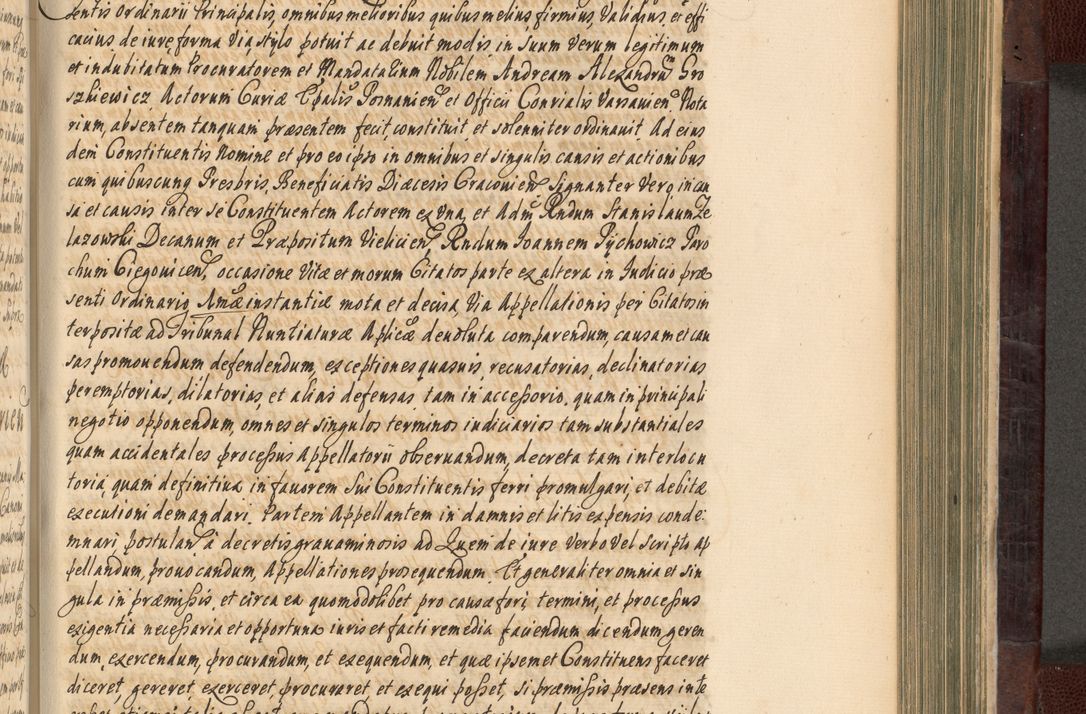 sentis Ordinarii Principalis, omnibus melioribus quibus melius, firmius, validius, et effi
cacius de iure, forma via stylo potuit ac debuit modis, in suum verum legitimum
et indubitatum Procuratorem et Mandatarium Nobilem Andream Alexandrũ Gro
szkiewicz Actorum Curiæ Epalis Posnanien et Officii Consialis Varsavien Nota
rium, absentem tanquam præsentem fecit, constituit, et solenniter ordinavit Ad eius
dem Constituentis Nomine et pro eo ipso in omnibus et singulis causis et actionibus
cum quibuscunq Presbris Beneficiatis Diæcesis Cracovien Signanter Vero in cau
sa et causis inter se Constituentem Actorem ex vna, et Adm Rndum Stanislaum Ze
lazowski Decanum et Præpositum Vielicien, Rndum Joannem Pychowicz Paro
chum Biegonicen, occasione Vitæ et morum Citatos parte ex altera in Iudicio præ
senti Ordinario Amæ instantiæ mota et decisa, Via Appellationis per Citatos in
terpositæ ad Tribunal Nuntiaturæ Aplicæ devoluta comparendum, causam et cau
sas promovendum defendendum, exceptiones quasvis, recusatorias, declinatorias
peremptorias, dilatorias, et alias defensas tam in accessorio quam in principali
negotio opponendum, omnes et singulos terminos iudiciarios tam substantiales
quam accidentales processus Appellatorii observandum, decreta tam interlocu
toria, quam definitiva in favorem sui Constituentis ferri promulgari, et debitæ
executioni demandari. Partem Appellantem in damnis et litis expensis conde:
mnari, postulan a decretis gravaminosis ad Quem de iure verbo vel scripto ap
pellandum, provocandum, Appellationes prosequendum. Et generaliter omnia et sin
gula in præmissis, et circa ea quomodolibet pro causæ fori, termini, et processus
exigentia necessaria et opportuna iuris et facti remedia faciendum dicendum, geren
dum, exercendum, procurandum, et exequendum, et quæ ipsemet Constituens faceret
diceret, gereret, exerceret, procuraret, et exequi posset, si præmissis præsens inte